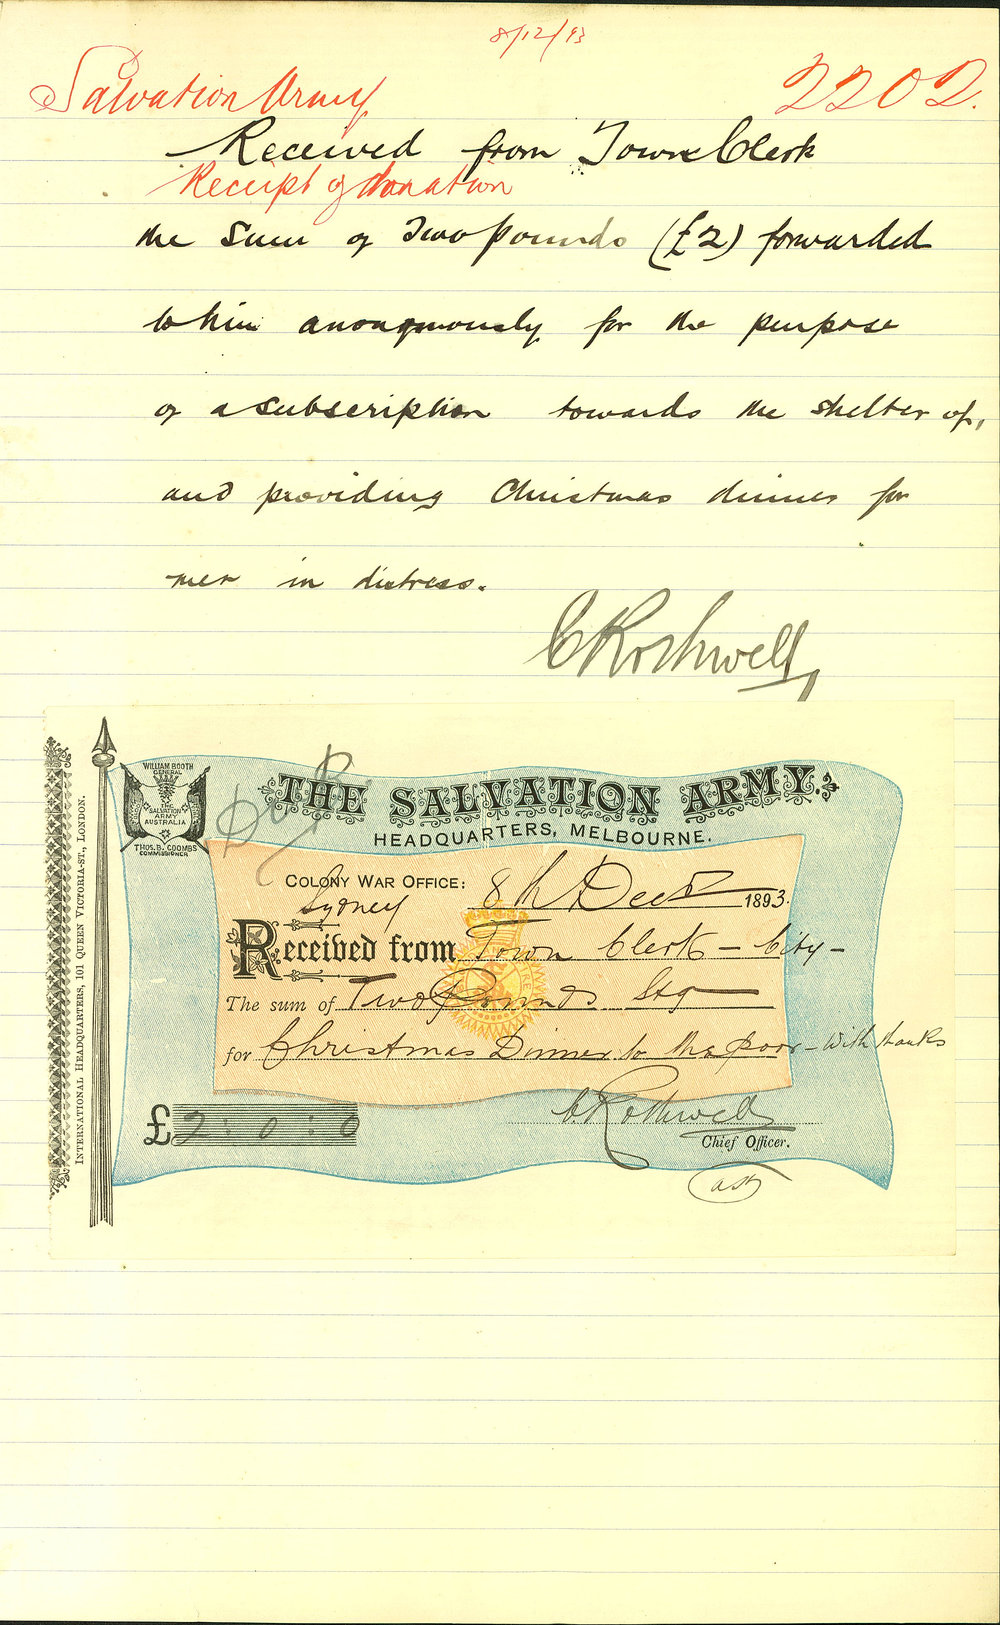 8/12/93
Salvation Army
2202.
Received from Town Clerk
Receipt of donation
the Sum of Two pounds (£2) forwarded
to him anonymously for the purpose
of a subscription towards the shelter of,
and providing Christmas dinner for
men in distress.
C Rothwell
WILLIAM BOOTH
GENERAL
THE
SALVATION
ARMY
AUSTRALIA
THOS. B. COOMBS
COMMISSIONER
INTERNATIONAL HEADQUARTERS, 101 QUEEN VICTORIA-ST., LONDON.
THE SALVATION ARMY.
HEADQUARTERS, MELBOURNE.
COLONY WAR OFFICE: 8th Decr 1893.
Sydney
Received from Town Clerk - City -
The sum of Two Pounds Stg
for Christmas Dinner to the poor - with thanks
£2:0:0
C. Rothwell
Chief Officer.